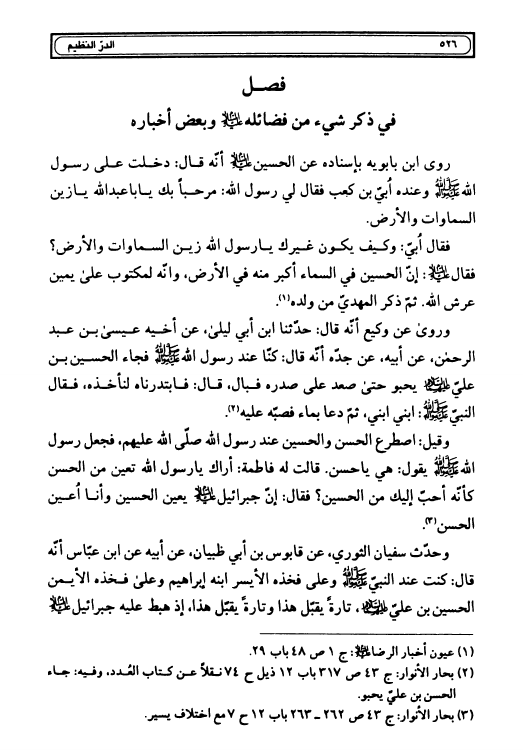 ٥٢٦
الدرّ النظيم
فصل
في ذكر شيء من فضائله عليه السلام وبعض أخباره
روى ابن بابويه بإسناده عن الحسين عليه السلام أنّه قال: دخلت على رسول
الله ﷺ وعنده اُبيّ بن كعب فقال لي رسول الله: مرحباً بك ياباعبدالله يازين
السماوات والأرض.
فقال اُبيّ: وكيف يكون غيرك يارسول الله زين السماوات والأرض؟
فقال عليه السلام: إنّ الحسين في السماء أكبر منه في الأرض، وانّه لمكتوب علىٰ يمين
عرش الله. ثمّ ذكر المهديّ من ولده(١).
وروىٰ عن وكيع أنّه قال: حدّثنا ابن أبي ليلىٰ، عن أخيه عيسىٰ بن عبد
الرحمٰن، عن أبيه، عن جدّه أنّه قال: كنّا عند رسول الله ﷺ فجاء الحسين بن
عليّ عليهما السلام يحبو حتىٰ صعد على صدره فبال، قال: فابتدرناه لنأخذه، فقال
النبيّ ﷺ: ابني ابني، ثمّ دعا بماء فصبّه عليه(٢).
وقيل: اصطرع الحسن والحسين عند رسول الله صلّى الله عليهم، فجعل رسول
الله ﷺ يقول: هي ياحسن. قالت له فاطمة: أراك يارسول الله تعين من الحسن
كأنّه أحبّ إليك من الحسين؟ فقال: إنّ جبرائيل عليه السلام يعين الحسين وأنا اُعين
الحسن(٣).
وحدّث سفيان الثوري، عن قابوس بن أبي ظبيان، عن أبيه عن ابن عبّاس أنّه
قال: كنت عند النبيّ ﷺ وعلى فخذه الأيسر ابنه إبراهيم وعلىٰ فخذه الأيمن
الحسين بن عليّ عليهما السلام، تارةً يقبّل هذا وتارة يقبّل هذا، إذ هبط عليه جبرائيل عليه السلام
(١) عيون أخبار الرضا عليه السلام: ج ١ ص ٤٨ باب ٢٩.
(٢) بحار الأنوار: ج ٤٣ ص ٣١٧ باب ١٢ ذيل ح ٧٤ نقلاً عن كتاب العُدد، وفيه: جاء
الحسن بن عليّ يحبو.
(٣) بحار الأنوار: ج ٤٣ ص ٢٦٢ ـ ٢٦٣ باب ١٢ ح ٧ مع اختلاف يسير.